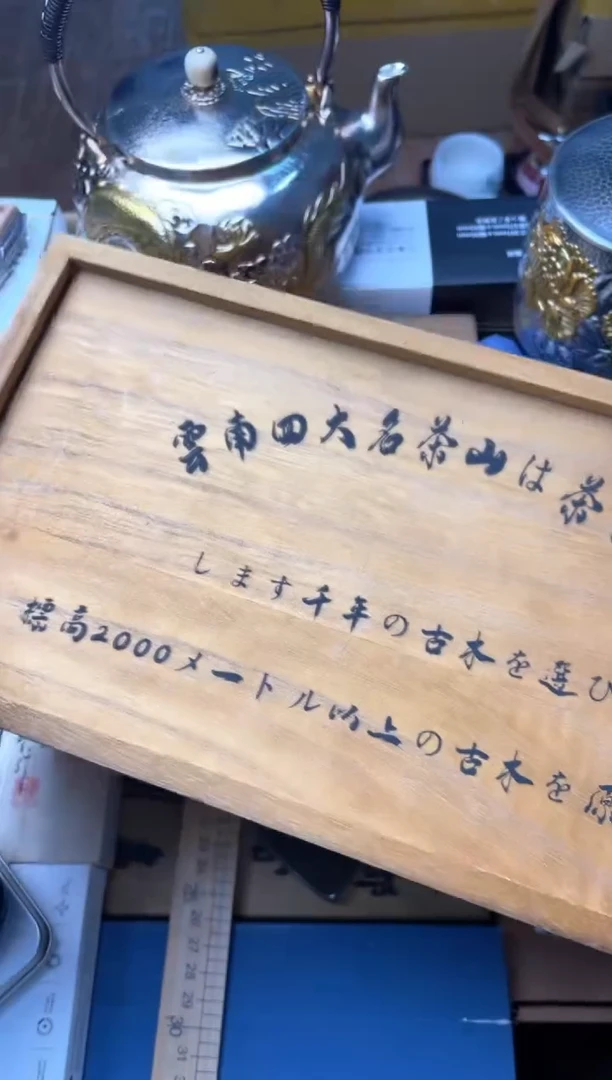 雲南四大名茶山は茶
します千年の古木を選び
標高2000メートル以上の古木を原
25
26
27
28
29
30
31